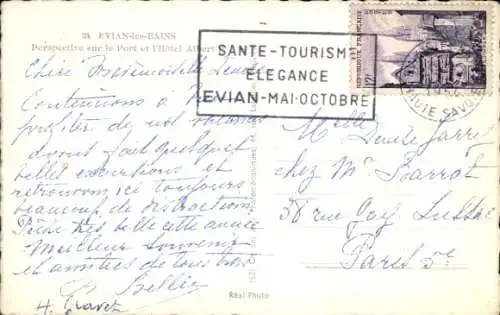 34 EVIAN-les-BAINS
Perspective sur le Port et l'Hôtel Albert
SANTE-TOURISM
ELEGANCE
EVIAN-MAI-OCTOBRE
REPUBLIQUE FRANÇAISE
12F
HAUTE SAVOIE
Chère Mademoiselle
Continuons à
profiter de nos vacances
avons fait quelques
belles excursions et
retrouvons ici toujours
beaucoup de distractions
Pêche très belle cette année
Meilleur souvenir
et amitiés de tous trois
Mlle Denise
chez Mr Barrat
58 rue Gay Lussac
Paris 5e
Réal-Photo